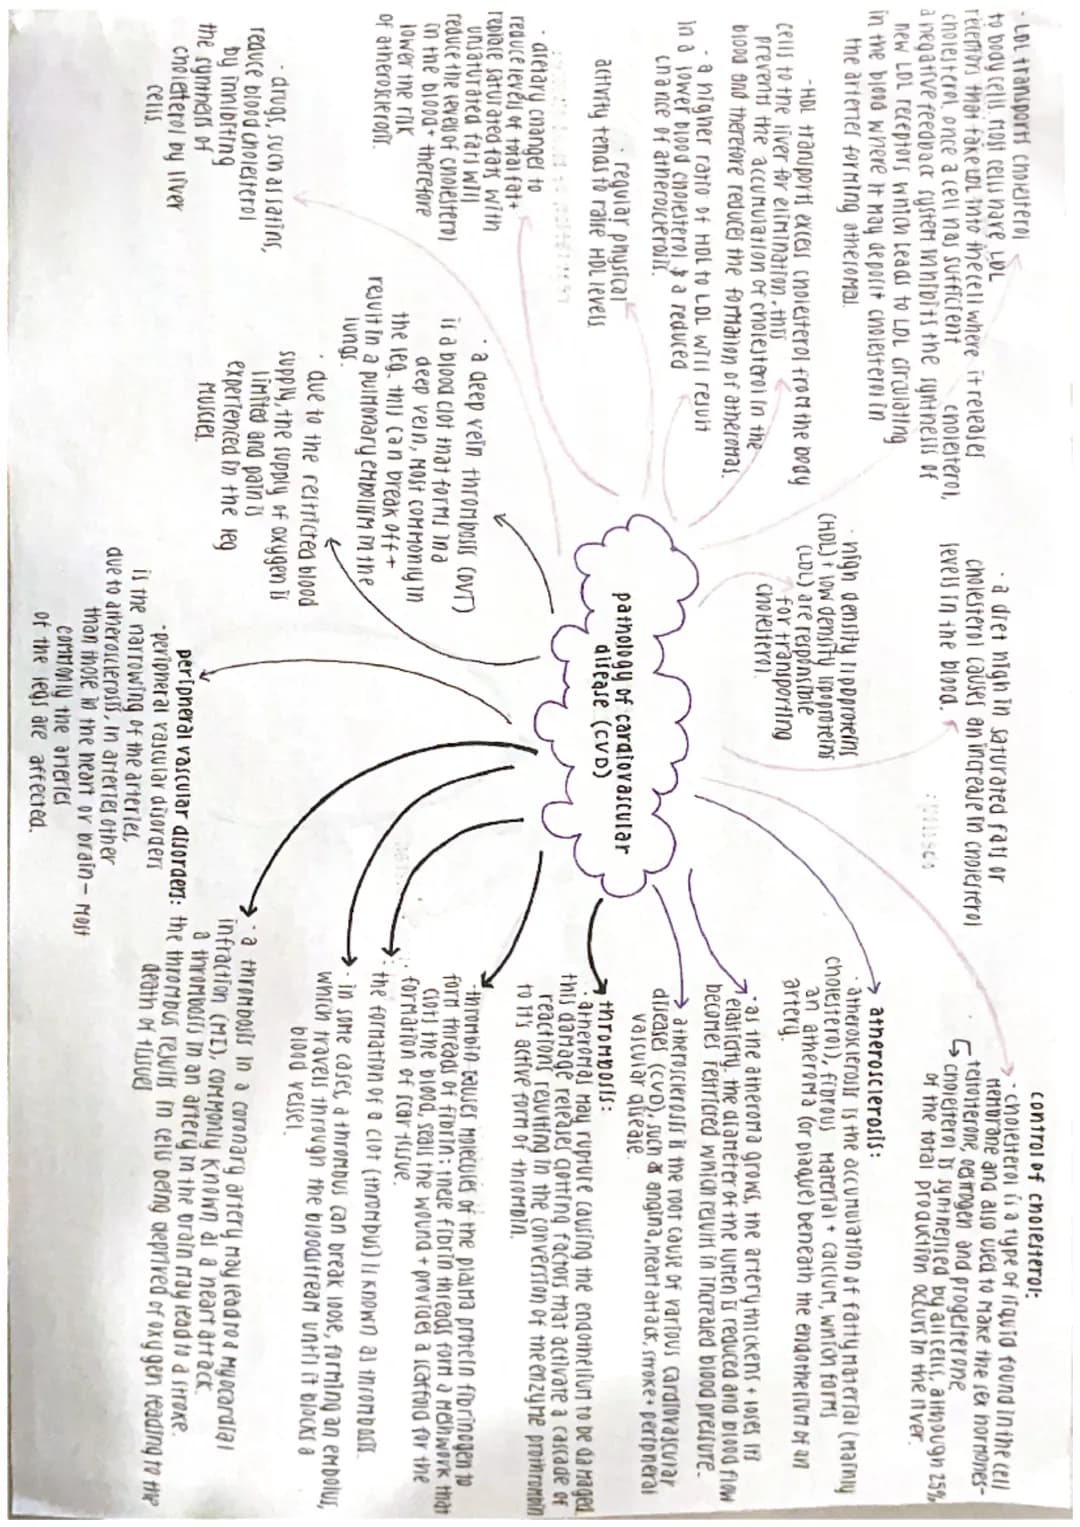 pathology of cardiovascular
disease (CVD)
control of cholesterol:
· cholesterol is a type of liquid found in the cell
membrane and also used to make the sex hormones-
testosterone, oestrogen and progesterone
↳ cholesterol is synthesised by all cells, although 25%
of the total production occurs in the liver.
· a diet high in saturated fats or
cholesterol causes an increase in cholesterol
levels in the blood.
· high density lipoproteins
(HDL) + low density lipoproteins
(LDL) are responsible
for transporting
cholesterol.
· LDL transports cholesterol
to body cells. most cells have LDL
receptors that take LDL into the cell where it releases
cholesterol. once a cell has sufficient cholesterol,
a negative feedback system inhibits the synthesis of
new LDL receptors which leads to LDL circulating
in the blood where it may deposit cholesterol in
the arteries forming atheromas.
· HDL transports excess cholesterol from the body
cells to the liver for elimination, this
prevents the accumulation of cholesterol in the
blood and therefore reduces the formation of atheromas.
· a higher ratio of HDL to LDL will result
in a lower blood cholesterol & a reduced
chance of atherosclerosis.
· regular physical
activity tends to raise HDL levels
· dietary changes to
reduce levels of total fat +
replace saturated fats with
unsaturated fats will
reduce the levels of cholesterol
in the blood + therefore
lower the risk
of atherosclerosis.
· drugs, such as statins,
reduce blood cholesterol
by inhibiting
the synthesis of
cholesterol by liver
cells.
atherosclerosis:
· atherosclerosis is the accumulation of fatty material (mainly
cholesterol), fibrous material + calcium, which forms
an atheroma (or plaque) beneath the endothelium of an
artery.
· as the atheroma grows, the artery thickens + loses its
elasticity. the diameter of the lumen is reduced and blood flow
becomes restricted which results in increased blood pressure.
· atherosclerosis is the root cause of various cardiovascular
diseases (CVD), such as angina, heart attack, stroke + peripheral
vascular disease.
thrombosis:
· atheromas may rupture causing the endothelium to be damaged
this damage releases clotting factors that activate a cascade of
reactions resulting in the conversion of the enzyme prothrombin
to it's active form of thrombin.
· thrombin causes molecules of the plasma protein fibrinogen to
form threads of fibrin: these fibrin threads form a meshwork that
clots the blood, seals the wound + provides a scaffold for the
formation of scar tissue.
· the formation of a clot (thrombus) is known as thrombosis.
· in some cases, a thrombus can break loose, forming an embolus,
which travels through the bloodstream until it blocks a
blood vessel.
· a thrombosis in a coronary artery may lead to a myocardial
infraction (MI), commonly known as a heart attack.
a thrombosis in an artery in the brain may lead to a stroke.
the thrombus results in cells being deprived of oxygen leading to the
death of tissues
peripheral vascular disorders:
· peripheral vascular disorders
is the narrowing of the arteries,
due to atherosclerosis, in arteries other
than those in the heart or brain - most
commonly the arteries
of the legs are affected.
· due to the restricted blood
supply, the supply of oxygen is
limited and pain is
experienced in the leg
muscles.
· a deep vein thrombosis (DVT)
is a blood clot that forms in a
deep vein, most commonly in
the leg. this can break off +
result in a pulmonary embolism in the
lungs.